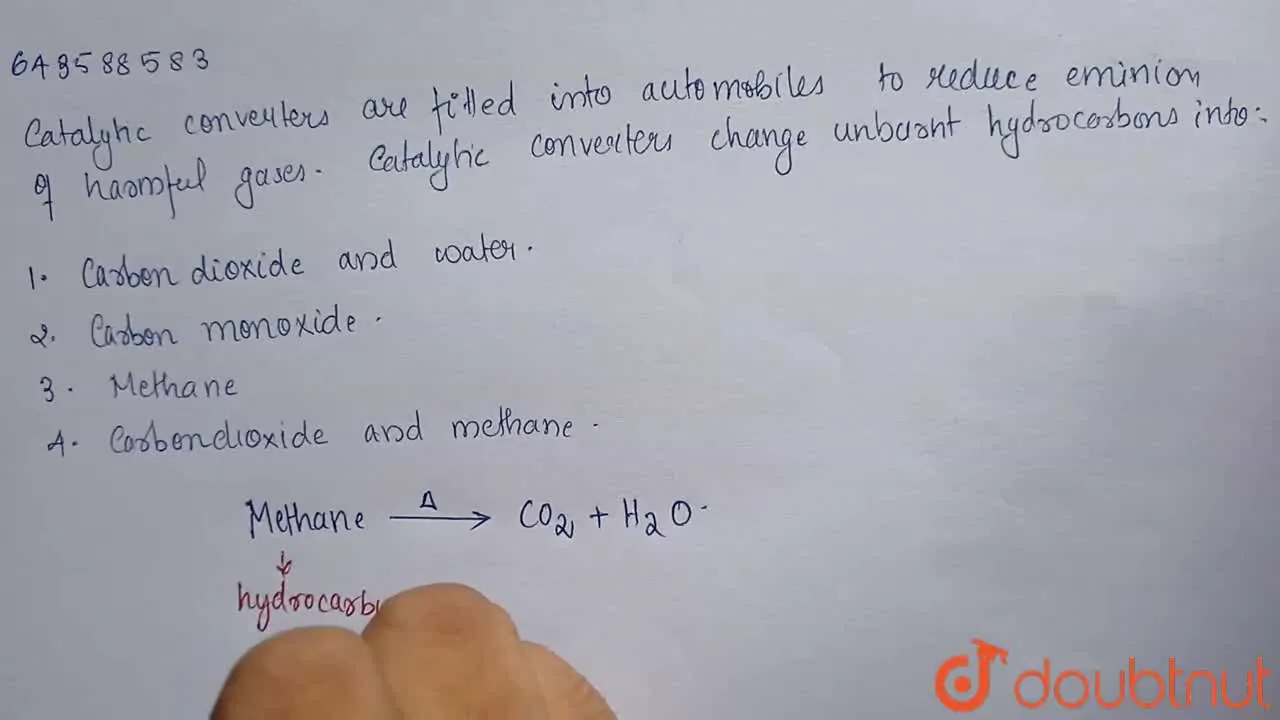 648588583
Catalytic converters are fitted into automobiles to reduce eminion
of harmful gases. Catalytic converters change unburnt hydrocarbons into:
1. Carbon dioxide and water.
2. Carbon monoxide.
3. Methane
4. Carbondioxide and methane.
Methane Δ→ CO2 + H2O.
hydrocarb
doubtnut